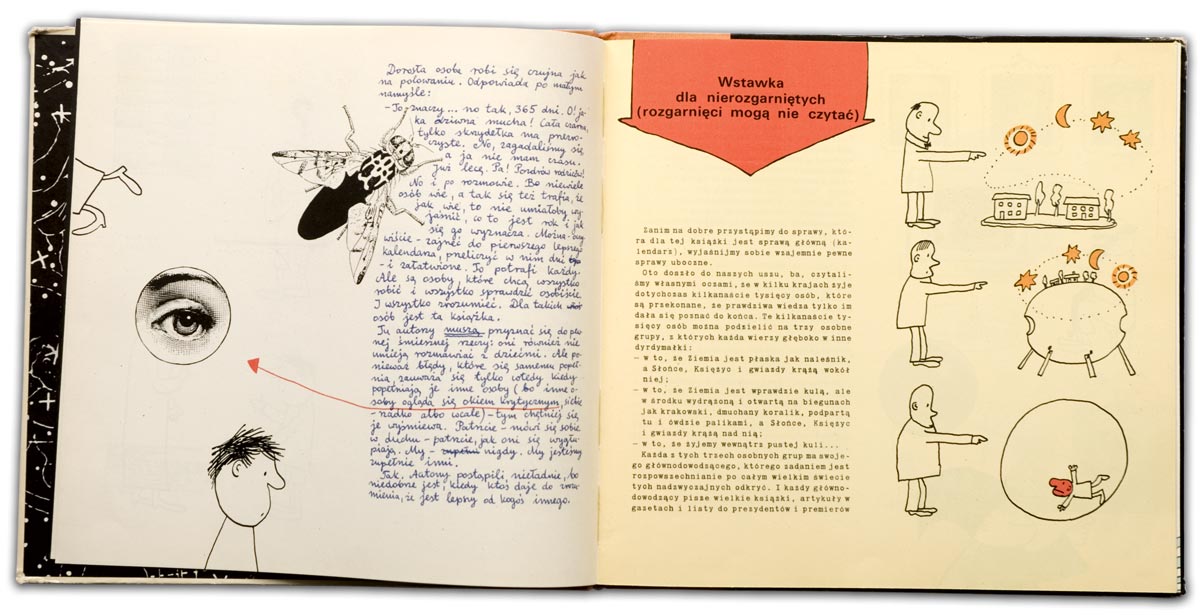 Dorosła osoba robi się czujna jak
na polowaniu. Odpowiada po małym
namyśle:
– To znaczy... no tak, 365 dni. O! ja-
ka dziwna mucha! Cała czarna,
tylko skrzydełka ma przezro-
czyste. No, zagadaliśmy się,
a ja nie mam czasu.
Już lecę. Pa! Pozdrów rodziców!
No i po rozmowie. Bo niewiele
osób wie, a tak się też trafia, że
jak wie, to nie umiałoby wy-
jaśnić, co to jest rok i jak
się go wyznacza. Można oczy-
wiście – zajrzeć do pierwszego lepszego
kalendarza, przeliczyć w nim dni
– i załatwione. To potrafi każdy.
Ale są osoby, które chcą wszystko
robić i wszystko sprawdzić osobiście.
I wszystko zrozumieć. Dla takich
osób jest ta książka.
Tu autorzy muszą przyznać się do pew-
nej śmiesznej rzeczy: oni również nie
umieją rozmawiać z dziećmi. Ale po-
nieważ błędy, które się samemu popeł-
nia, zauważa się tylko wtedy kiedy
popełniają je inne osoby (bo inne o-
soby ogląda się okiem krytycznym, siebie
– rzadko albo wcale) – tym chętniej się
je wyśmiewa. Patrzcie – mówi się sobie
w duchu – patrzcie, jak oni się wygłu-
piają. My – zupełnie nigdy. My jesteśmy
zupełnie inni.
Tak. Autorzy postąpili nieładnie, bo
niedobrze jest, kiedy ktoś daje do zrozu-
mienia, że jest lepszy od kogoś innego.
Wstawka
dla nierozgarniętych
(rozgarnięci mogą nie czytać)
Zanim na dobre przystąpimy do sprawy, któ-
ra dla tej książki jest sprawą główną (ka-
lendarz), wyjaśnijmy sobie wzajemnie pewne
sprawy uboczne.
Oto doszło do naszych uszu, ba, czytali-
śmy własnymi oczami, że w kilku krajach żyje
dotychczas kilkanaście tysięcy osób, które
są przekonane, że prawdziwa wiedza tylko im
dała się poznać do końca. Te kilkanaście ty-
sięcy osób można podzielić na trzy osobne
grupy, z których każda wierzy głęboko w inne
dyrdymałki;
– w to, że Ziemia jest płaska jak naleśnik,
a Słońce, Księżyc i gwiazdy krążą wokół
niej;
– w to, że Ziemia jest wprawdzie kulą, ale
w środku wydrążoną i otwartą na biegunach
jak krakowski, dmuchany koralik, podpartą
tu i ówdzie palikami, a Słońce, Księżyc
i gwiazdy krążą nad nią;
– w to, że żyjemy wewnątrz pustej kuli...
Każda z tych trzech osobnych grup ma swoje-
go głównodowodzącego, którego zadaniem jest
rozpowszechnianie po całym wielkim świecie
tych nadzwyczajnych odkryć. I każdy główno-
dowodzący pisze wielkie książki, artykuły w
gazetach i listy do prezydentów i premierów